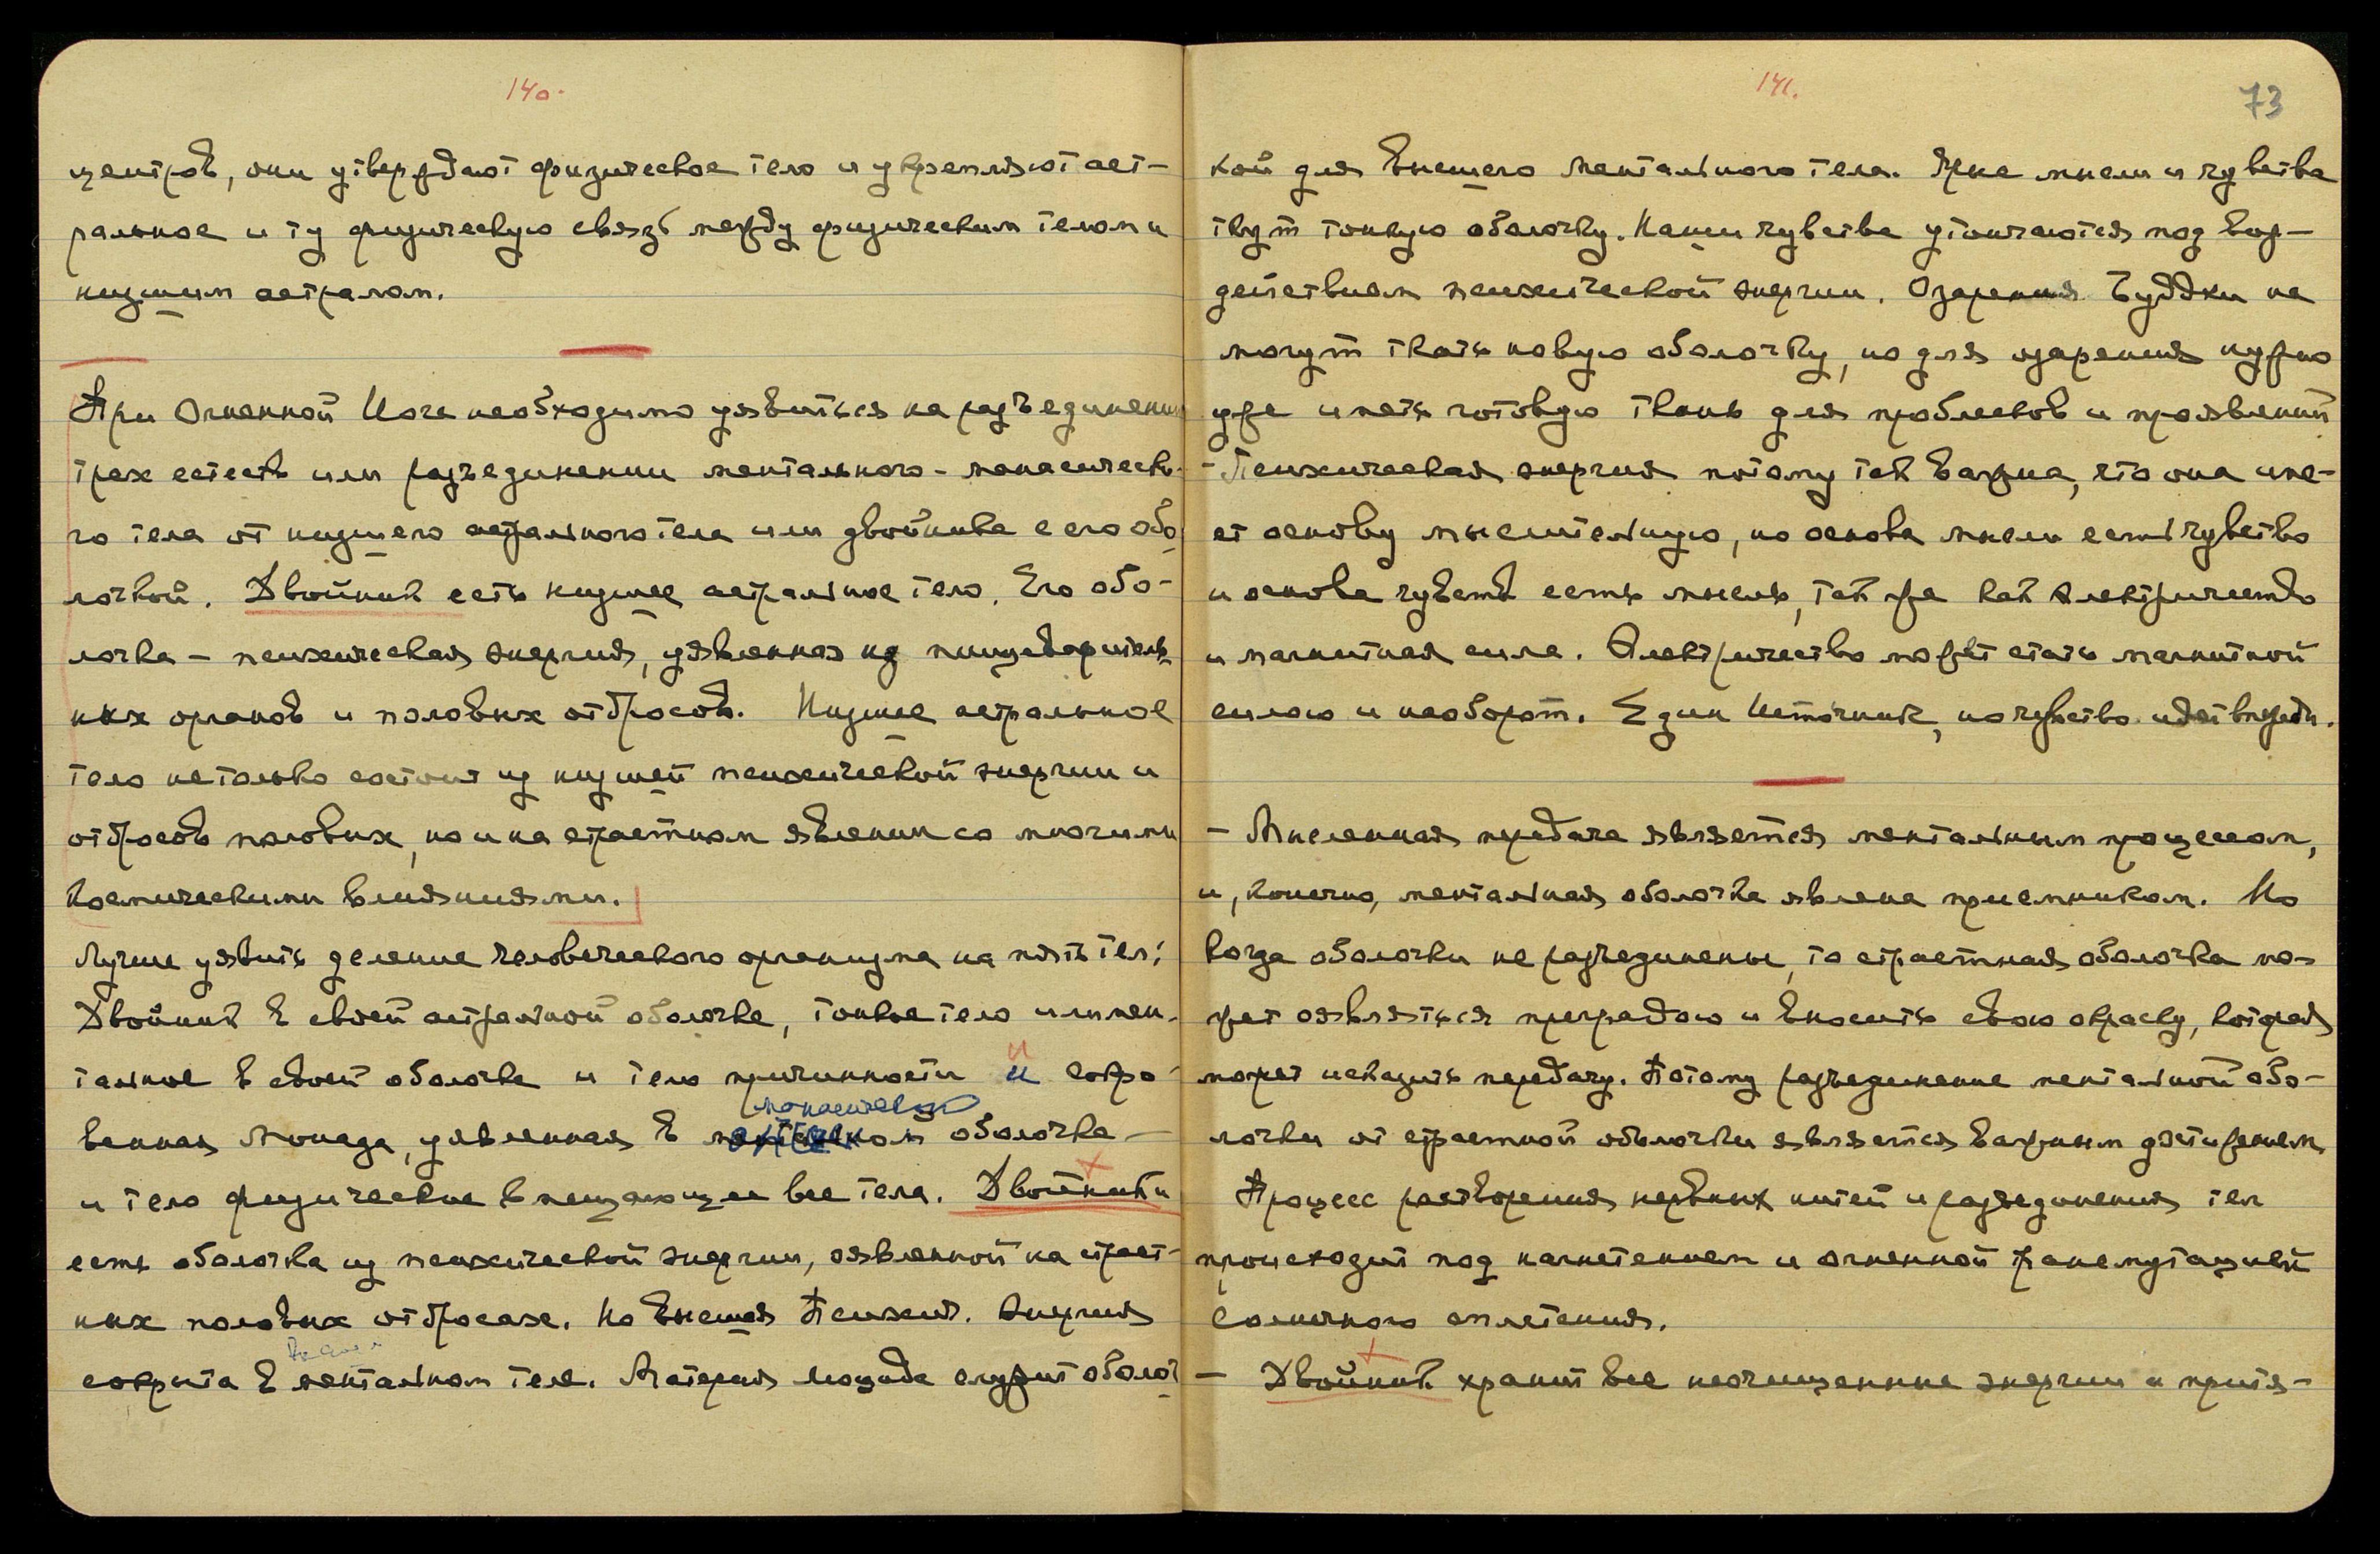 140.
центров, они утверждают физическое тело и укрепляют аст-
ральное и ту физическую связь между физическим телом и
низшим астралом.
При Огненной Йоге необходимо уявиться на разъединении
трех естеств или разъединении ментального - манасическо-
го тела от низшего астрального тела или двойника с его обо-
лочкой. Двойник есть низшее астральное тело. Его обо-
лочка - психическая энергия, уявленная из пищеварительн-
ных органов и половых отбросов. Низшее астральное
тело не только состоит из низшей психической энергии и
отбросов половых, но и на страстном явлении со многими
космическими влияниями.
Лучше уявить деление человеческого организма на пять тел:
Двойник в своей астральной оболочке, тонкое тело или мен-
тальное в своей оболочке и тело причинности и сокро-
манасическо
венная Монада, уявленная в оболочке -
и тело физическое вмещающее все тела. Двойник
есть оболочка из психической энергии, оявленной на страст-
ных половых отбросах. Но высшая Психич. Энергия
сокрыта в ментальном теле. Материя Люцида служит оболоч-
141.
73
кой для высшего ментального тела. Яркие мысли и чувства
ткут тонкую оболочку. Наши чувства утончаются под воз-
действием психической энергии. Озарения Буддхи не
могут ткать новую оболочку, но для озарения нужно
уже иметь готовую ткань для проблесков и проявлений
- Психическая энергия потому так важна, что она име-
ет основу мыслительную, но основа мысли есть чувство
и основа чувств есть мысль, так же как электричество
и магнитная сила. Электричество может стать магнитной
силою и наоборот. Един Источник, но чувство идет впереди.
- Мысленная передача является ментальным процессом,
и, конечно, ментальная оболочка явлена приемником. Но
когда оболочки не разъединены, то страстная оболочка мо-
жет оявляться преградою и вносить свою окраску, которая
может исказить передачу. Потому разъединение ментальной обо-
лочки от страстной оболочки является важным достижением
Процесс растворения нервных нитей и разъединения тел
происходит под нагнетением и огненной трансмутацией
Солнечного сплетения.
- Двойник хранит все неочищенные энергии и притя-